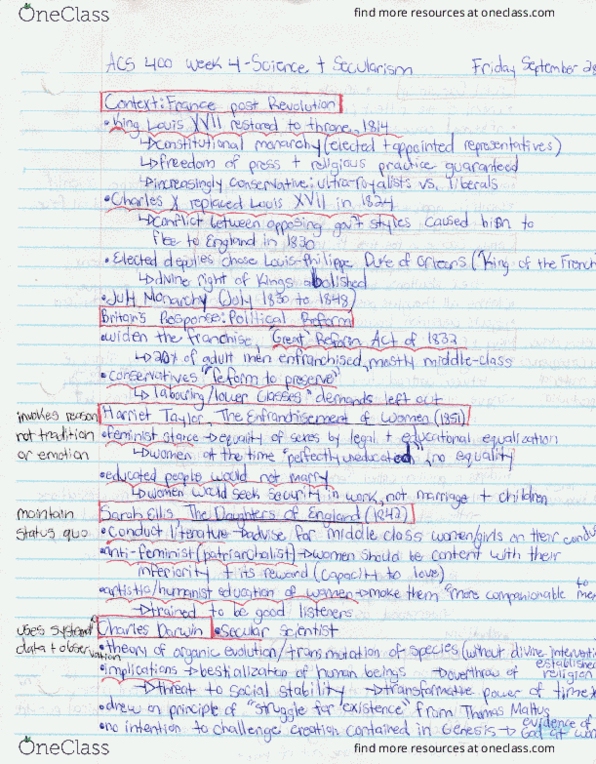 OneClass
find more resources at oneclass.com
ACS 400 week 4-Science + Secularism Friday September 28
Context: France post Revolution
•King Louis XVII restored to throne, 1814
↳constitutional monarchy (elected + appointed representatives)
↳freedom of press + religious practice guaranteed
↳increasingly conservative: ultra-royalists vs. liberals
•Charles X replaced Louis XVII in 1824
↳conflict between opposing gov't styles caused him to
flee to England in 1830
•Elected deputies chose Louis-Philippe, Duke of Orleans ("King of the French
↳divine right of Kings abolished
•July Monarchy (July 1830 to 1848)
Britain's Response: Political Reform
•widen the franchise, "Great" Reform Act of 1832
↳20% of adult men enfranchised, mostly middle-class
•conservatives "reform to preserve"
↳labouring/lower classes' demands left out
invokes reason Harriet Taylor, The Enfranchisement of Women (1851)
not tradition •feminist stance →equality of sexes by legal + educational equalization
or emotion ↳women at the time "perfectly uneducated", no equality
•educated people would not marry
↳women would seek security in work, not marriage + children
maintain Sarah Ellis, The Daughters of England (1842)
status quo •Conduct literature →advise for middle class women/girls on their condu
•anti-feminist (patriarchalist) →women should be content with their
inferiority + its reward (capacity to love)
•artistic/humanist education of women →make them "more companionable to me
→trained to be good listeners
uses systematic Charles Darwin •Secular scientist
data + observation •theory of organic evolution/transmutation of species (without divine interventi
•implications →bestialization of human beings →overthrow of established religion
→threat to social stability →transformative power of time
•drew on principle of "struggle for existence" from Thomas Maltus
•no intention to challenge creation contained in Genesis → evidence of God at wor
OneClass
find more resources at oneclass.com